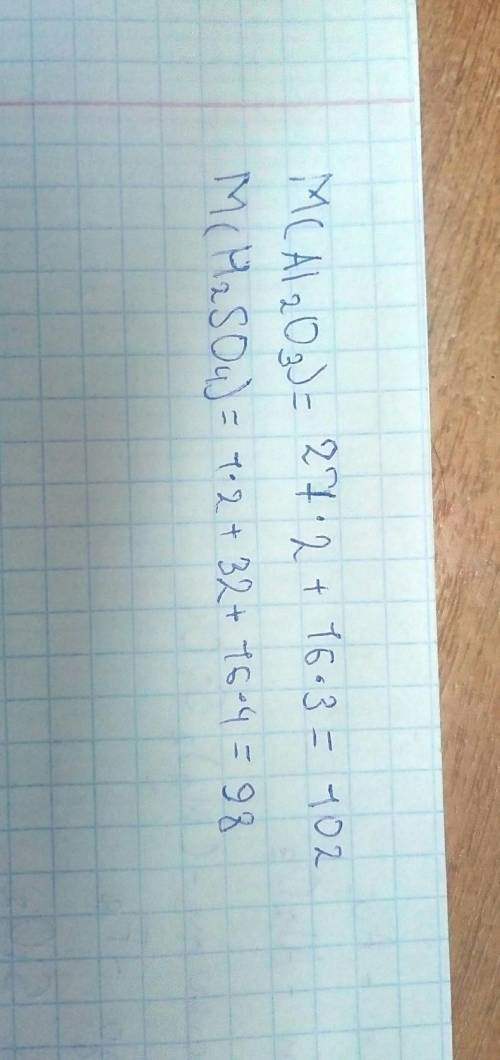 M(Al₂O₃) = 27·2 + 16·3 = 102
M(H₂SO₄) = 1·2 + 32 + 16·4 = 98